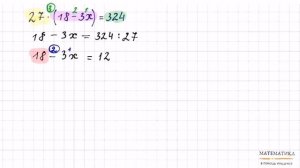 27 · (18 - 3x) = 324
18 - 3x = 324 : 27
18 - 3x = 12
МАТЕМАТИКА